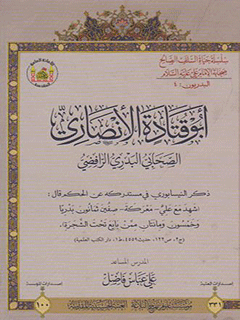 سلسلة حياة السلف الصالح
صحابة الإمام علي عليه السلام
البدريون:
أبو قتادة الأنصاري
الصحابي البدري الرافضي
ذكر النيسابوري في مستدركه عن الحكم قال:
شهد مع علي - معركة - صفين ثمانون بدريا
وخمسون ومائتان ممن بايع تحت الشجرة،
دار الكتب العلمية)
المدرس المساعد
علي عباس فاضل
٣٣١
١٠٠